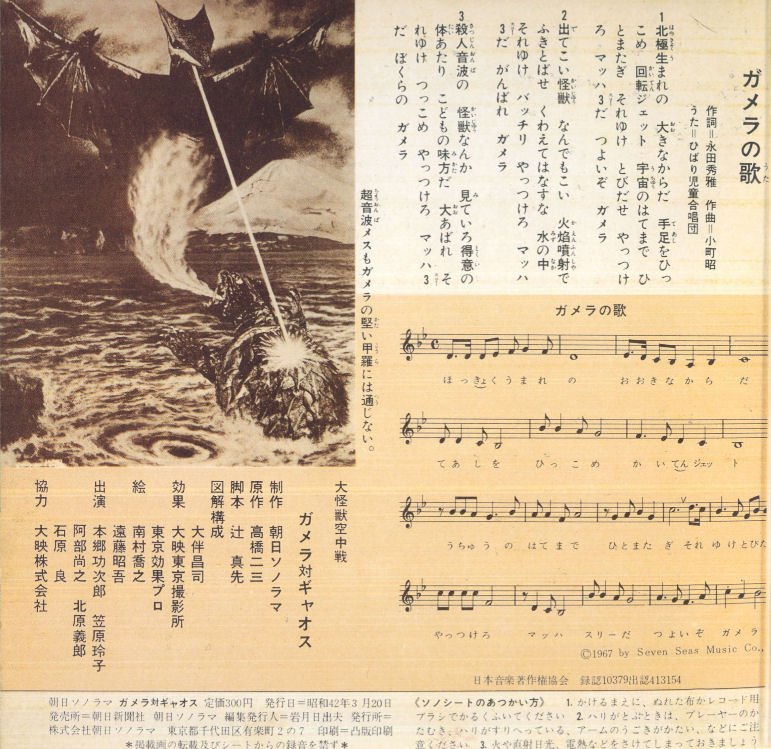 ガメラの歌
作詞＝永田秀雅　作曲＝小町昭
うた＝ひばり児童合唱団
1 北極生まれの　大きなからだ　手足をひっ
こめ　回転ジェット　宇宙のはてまで　ひ
とまたぎ　それゆけ　とびだせ　やっつけ
ろ　マッハ3だ　つよいぞ　ガメラ
2 出てこい怪獣　なんでもこい　火焰噴射で
ふきとばせ　くわえてはなすな　水の中
それゆけ　バッチリ　やっつけろ　マッハ
3だ　がんばれ　ガメラ
3 殺人音波の　怪獣なんか　見ていろ得意の
体あたり　こどもの味方だ　大あばれ　そ
れゆけ　つっこめ　やっつけろ　マッハ3
だ　ぼくらの　ガメラ
超音波メスもガメラの堅い甲羅には通じない。
ガメラの歌
ほっきょくうまれの　おおきなからだ
てあしを　ひっこめ　かいてんジェット
うちゅうの　はてまで　ひとまたぎ　それゆけとびた
やっつけろ　マッハ　スリーだ　つよいぞ　ガメラ
©1967 by Seven Seas Music Co.,
日本音楽著作権協会　録認10379出認413154
大怪獣空中戦
ガメラ対ギャオス
制作　朝日ソノラマ
原作　高橋二三
脚本　辻　真先
図解構成
大伴昌司
効果　大映東京撮影所
東京効果プロ
絵　南村喬之
遠藤昭吾
出演　本郷功次郎　笠原玲子
阿部尚之　北原義郎
石原　良
協力　大映株式会社
朝日ソノラマ　ガメラ対ギャオス　定価300円　発行日＝昭和42年3月20日
発売所＝朝日新聞社　朝日ソノラマ　編集発行人＝岩月日出夫　発行所＝
株式会社朝日ソノラマ　東京都千代田区有楽町2の7　印刷＝凸版印刷
＊掲載画の転載及びシートからの録音を禁ず＊
《ソノシートのあつかい方》　1. かけるまえに、ぬれた布かレコード用
ブラシでかるくふいてください　2. ハリがとぶときは、プレーヤーのか
たむき、ハリがすりへっている、アームのうごきがかたい、などにご注
意ください　3. 火や直射日光、電熱などをさけてしまっておきましょう